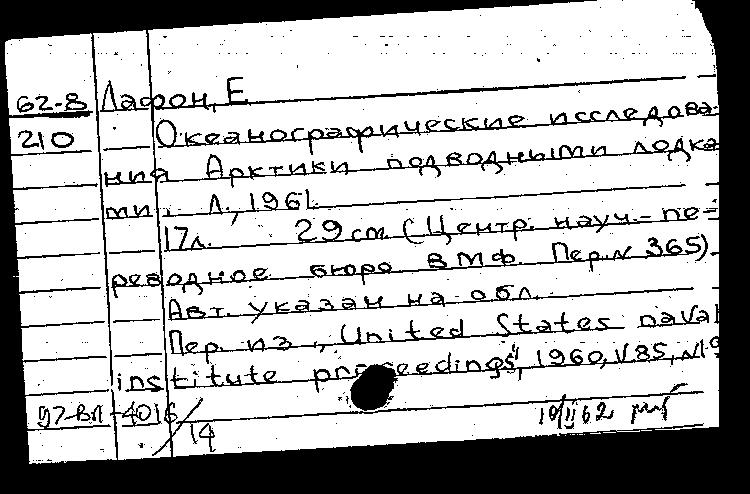 62-8 Лафон, Е.
210 Океанографические исследова-
ния Арктики подводными лодка
ми. Л., 1961.
17л. 29 см (Центр. науч.-пе-
реводное бюро ВМФ. Пер. N 365).
Авт. указан на обл.
Пер. из „United States naval
institute proceedings", 1960, V.85, N19
97-ВЛ-4016/14 10/II 62